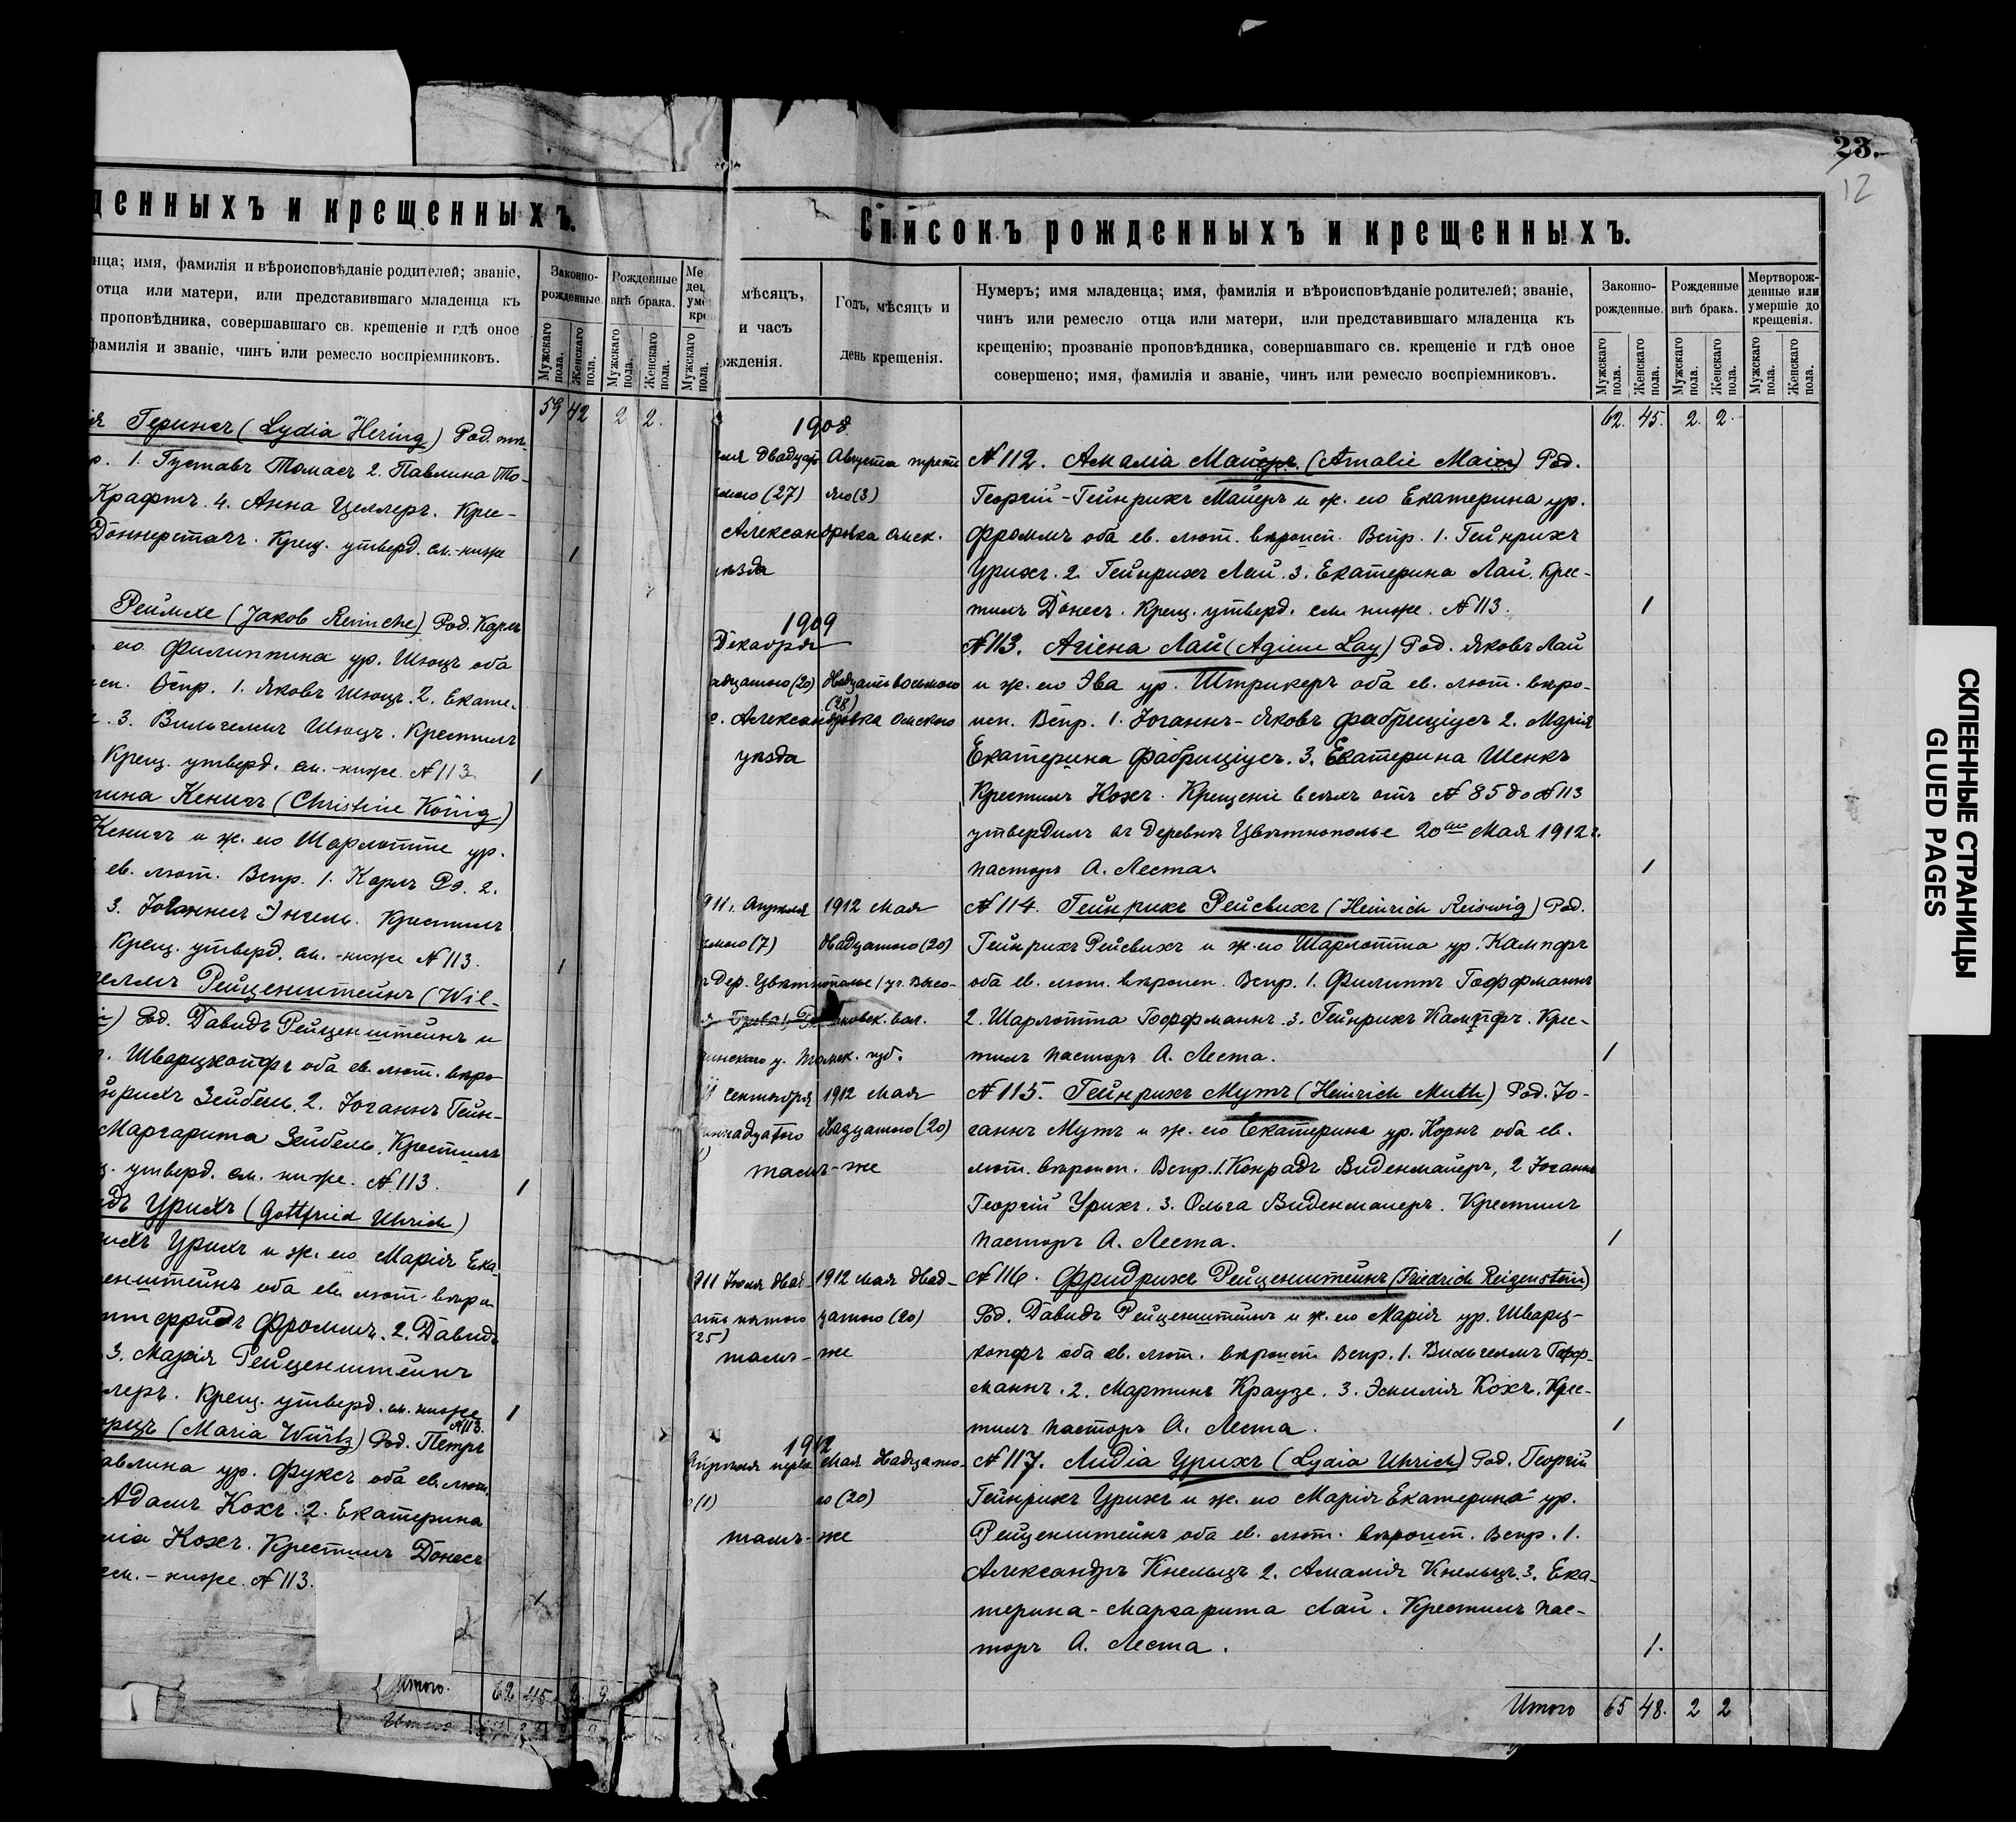 23.
12
денныхъ и крещенныхъ.
нца; имя, фамилія и вѣроисповѣданіе родителей; званіе,
отца или матери, или представившаго младенца къ
проповѣдника, совершавшаго св. крещеніе и гдѣ оное
фамилія и званіе, чинъ или ремесло воспріемниковъ.
Законно-
рожденные.
Рожденные
внѣ брака.
Мужскаго пола.
Женскаго пола.
Мужскаго пола.
Женскаго пола.
Мужскаго пола.
59 42 2 2.
Герингъ (Lydia Hering) Род.
р. 1. Густавъ Томасъ 2. Павлина То-
Крафтъ. 4. Анна Целлеръ. Крес-
Доннерстагъ. Крещ. утверд. см.-ниже
1
Реймхе (Jakob Reimche) Род. Карлъ
его Филиппина ур. Шюцъ оба
Вспр. 1. Яковъ Шюцъ. 2. Екате-
3. Вильгельмъ Шюцъ. Крестилъ
Крещ. утверд. см.-ниже. №113.
1
тина Кенигъ (Christine König)
Кенигъ и ж. его Шарлотте ур.
ев. лют. Вспр. 1. Карлъ Рэ. 2.
3. Іоганнесъ Энгель. Крестилъ
Крещ. утверд. см.-ниже №113.
1
гельмъ Рейценштейнъ (Wil-
Род. Давидъ Рейценштейнъ и
Шварцкопфъ оба ев. лют. вѣро-
йнрихъ Зейбель. 2. Іоганнъ Гейн-
Маргарита Зейбель. Крестилъ
утверд. см. ниже. №113.
1
дъ Урихъ (Gottfried Uhrich)
ихъ Урихъ и ж. его Марія Ека-
енштейнъ оба ев. лют. вѣро
ттфридъ Фроммъ. 2. Давидъ
3. Марія Рейценштейнъ
леръ. Крещ. утверд. см. ниже
№113.
1
рцъ (Maria Würtz) Род. Петръ
авлина ур. Фуксъ оба ев. лют.
Адамъ Кохъ. 2. Екатерина
лія Кохъ. Крестилъ Донесъ
см.-ниже. №113.
Итого. 62 45 2 2
Списокъ рожденныхъ и крещенныхъ.
мѣсяцъ,
и часъ
ожденія.
Годъ, мѣсяцъ и
день крещенія.
Нумеръ; имя младенца; имя, фамилія и вѣроисповѣданіе родителей; званіе,
чинъ или ремесло отца или матери, или представившаго младенца къ
крещенію; прозваніе проповѣдника, совершавшаго св. крещеніе и гдѣ оное
совершено; имя, фамилія и званіе, чинъ или ремесло воспріемниковъ.
Законно-
рожденные.
Рожденные
внѣ брака.
Мертворож-
денные или
умершіе до
крещенія.
Мужскаго пола.
Женскаго пола.
Мужскаго пола.
Женскаго пола.
Мужскаго пола.
Женскаго пола.
62. 45. 2. 2.
1908
ля двадцать Августа треть
мого (27) яго (3)
Александровка Омск.
уѣзда
№112. Амалія Майеръ (Amalie Maier) Род.
Георгій-Гейнрихъ Майеръ и ж. его Екатерина ур.
Фроммъ оба ев. лют. вѣроисп. Вспр. 1. Гейнрихъ
Урихъ. 2. Гейнрихъ Лай. 3. Екатерина Лай. Крес-
тилъ Донесъ. Крещ. утверд. см. ниже. №113.
1
1909
Декабря
адцатого (20) двадцать восьмого (28)
с. Александровка Омскаго
уѣзда
№113. Агіена Лай (Agiene Lay) Род. Яковъ Лай
и ж. его Эва ур. Штрикеръ оба ев. лют. вѣро-
исп. Вспр. 1. Іоганнъ-Яковъ Фабриціусъ 2. Марія
Екатерина Фабриціусъ. 3. Екатерина Шенкъ
Крестилъ Кохъ. Крещеніе всѣмъ отъ №85 до №113
утвердилъ въ деревнѣ Цвѣтнополье 20го Мая 1912 г.
пасторъ А. Леста.
1
911. Апрѣля 1912 Мая
мого (7) двадцатого (20)
Дер. Цвѣтнополье / уч. Высо-
Грива/, вол.
инскаго у. Томск. губ.
№114. Гейнрихъ Рейсвихъ (Heinrich Reiswig) Род.
Гейнрихъ Рейсвихъ и ж. его Шарлотта ур. Кампфъ
оба ев. лют. вѣроисп. Вспр. 1. Филиппъ Гоффманнъ
2. Шарлотта Гоффманнъ. 3. Гейнрихъ Кампфъ. Крес-
тилъ пасторъ А. Леста.
1
сентября 1912 Мая
надцатого двадцатого (20)
тамъ-же
№115. Гейнрихъ Мутъ (Heinrich Muth) Род. Іо-
ганнъ Мутъ и ж. его Екатерина ур. Корнъ оба ев.
лют. вѣроисп. Вспр. 1. Конрадъ Виденмайеръ, 2 Іоганнъ
Георгій Урихъ. 3. Ольга Виденмайеръ. Крестилъ
пасторъ А. Леста.
1
911 Іюля двад- 1912 Мая двад-
ать пятого цатого (20)
(25)
тамъ-же
№116. Фридрихъ Рейценштейнъ (Friedrich Reizenstein)
Род. Давидъ Рейценштейнъ и ж. его Марія ур. Шварц-
копфъ оба ев. лют. вѣроисп. Вспр. 1. Вильгельмъ Гофф-
маннъ. 2. Мартинъ Краузе. 3. Эмилія Кохъ. Крес-
тилъ пасторъ А. Леста.
1
1912
Апрѣля перва Мая двадцато-
о (1) го (20)
тамъ-же
№117. Лидія Урихъ (Lydia Uhrich) Род. Георгій
Гейнрихъ Урихъ и ж. его Марія Екатерина ур.
Рейценштейнъ оба ев. лют. вѣроисп. Вспр. 1.
Александръ Кнельцъ 2. Амалія Кнельцъ. 3. Ека-
терина-Маргарита Лай. Крестилъ пас-
торъ А. Леста.
1.
Итого 65 48. 2 2
СКЛЕЕННЫЕ СТРАНИЦЫ
GLUED PAGES